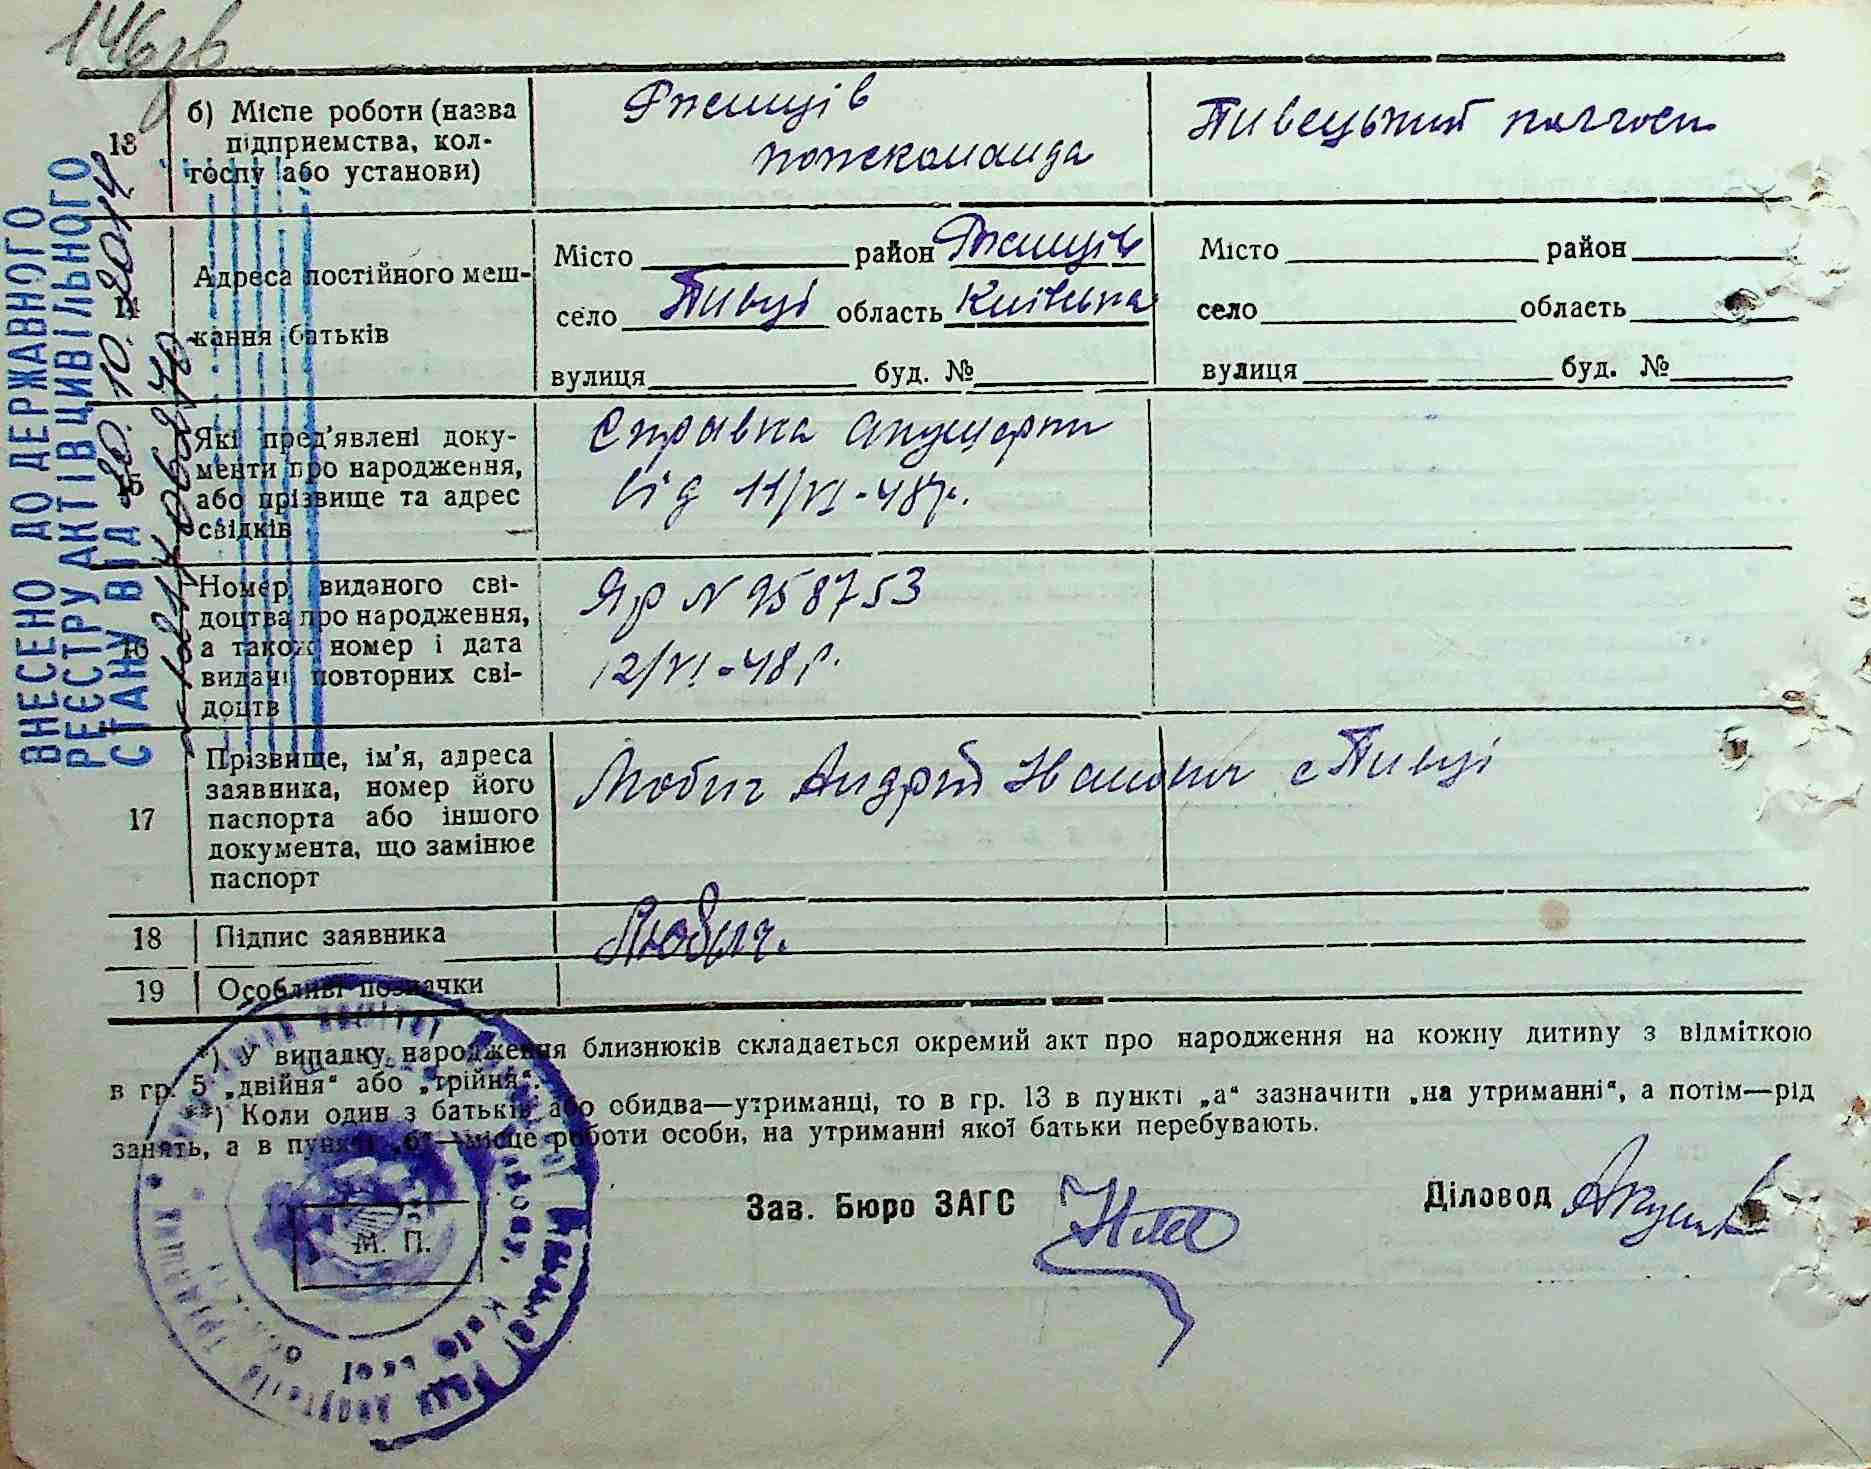 146зв
13
б) Місце роботи (назва
підприємства, кол-
госпу або установи)
Ржищів
пожкоманда
Пивецький колгосп
14
Адреса постійного меш-
кання батьків
Місто район Ржищів
село Пивці область Київська
вулиця буд. №
Місто район
село область
вулиця буд. №
15
Які пред'явлені доку-
менти про народження,
або прізвище та адрес
свідків
Справка акушерки
від 11/VI-48р.
16
Номер виданого сві-
доцтва про народження,
а також номер і дата
видачі повторних сві-
доцтв
ЯР N 958753
12/VI-48р.
17
Прізвище, ім'я, адреса
заявника, номер його
паспорта або іншого
документа, що замінює
паспорт
Любич Андрій Іванович с Пивці
18
Підпис заявника
Любич.
19
Особливі позначки
*) У випадку народження близнюків складається окремий акт про народження на кожну дитину з відміткою
в гр. 5 „двійня“ або „трійня“.
**) Коли один з батьків або обидва—утриманці, то в гр. 13 в пункті „а“ зазначити „на утриманні“, а потім—рід
занять, а в пункті „б“—місце роботи особи, на утриманні якої батьки перебувають.
Зав. Бюро ЗАГС
Діловод
М. П.
ВНЕСЕНО ДО ДЕРЖАВНОГО
РЕЄСТРУ АКТІВ ЦИВІЛЬНОГО
СТАНУ ВІД 30.10.2014